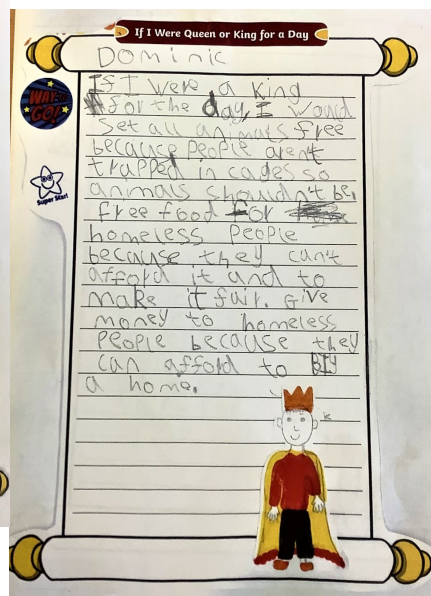 If I Were Queen or King for a Day
Dominic
If I were a king
for the day, I woud
set all animals free
because people aren't
trapped in cages so
animals shouldn't be.
free food for
homeless people
because they can't
afford it and to
make it fair. Give
money to homeless
people because they
can afford to BIY
a home.
WAY TO
GO!
Super Star!